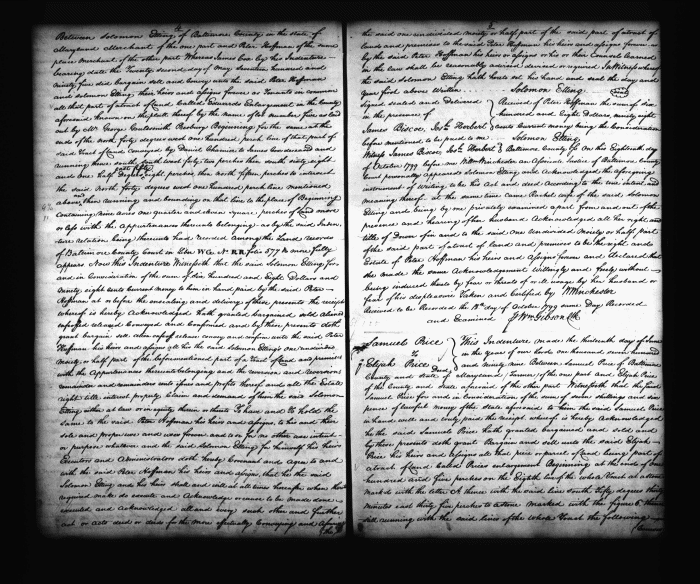 Between Solomon Etting of Baltimore County in the state of
Maryland Merchant of the one part and Peter Hoffman of the same
place Merchant of the other part Whereas James Cox by his Indenture
bearing date the Twenty second day of May seventeen hundred and
ninety five did bargain sell and convey unto the said Peter Hoffman
and Solomon Etting their heirs and assigns forever as Tenants in common
all that part of a tract of Land called Edwards Enlargement in the County
aforesaid known on the platt thereof by the name of Lot number five as laid
out by Mr. George Beginning for the same at the
ends of the north forty degrees west one hundred perch line of that part of
said tract of Land conveyed by David to James Cox and
running thence south south west forty two perches then south eighty
and one half degrees eight perches then north fifteen perches to intersect
the said north forty degrees west one hundred perch line mentioned
above, then running and bounding on that line to the place of Beginning
Containing nine acres one quarter and square perches of Land more
or less with the appurtenances thereunto belonging as by the said Inden
ture relation being thereunto had recorded among the Land records
of Baltimore County Court in Liber W.G. No. R.R. folio 577 &c more fully
appears Now this Indenture Witnesseth that the said Solomon Etting for
and in Consideration of the sum of six hundred and Eight Dollars and
Ninety eight cents Current money to him in hand paid by the said Peter
Hoffman at or before the ensealing and delivery of these presents the receipt
whereof is hereby Acknowledged Hath granted bargained sold aliened
enfeoffed released Conveyed and Confirmed and by these presents doth
grant bargain sell alien enfeoff release convey and confirm unto the said Peter
Hoffman his heirs and assigns all the said Solomon Ettings one undivided
Moiety or half part of the beforementioned part of a tract of Land and premises
with the Appurtenances thereunto belonging and the reversion and reversions
remainder and remainders rents issues and profits thereof and all the Estate
right title interest property Claim and demand of him the said Solomon
Etting either at law or in equity therein or thereto To have and To hold the
same to the said Peter Hoffman his heirs and assigns, to his and their
sole and proper use and uses forever and to or for no other use intent
or purpose whatever and the said Solomon Etting for himself his heirs
Executors and Administrators doth hereby Covenant and Agree to and
with the said Peter Hoffman his heirs and assigns, that he the said
Solomon Etting and his heirs shall and will at all times hereafter when there
required make do execute and Acknowledge or cause to be made done
executed and Acknowledged all and every such other and further
act or acts deed or deeds for the more effectually Conveying and assuring
the said one undivided moiety or half part of the said part of a tract of
lands and premises to the said Peter Hoffman his heirs and assigns forever as
by the said Peter Hoffman his heirs and assigns or his or their Counsel learned
in the law shall be reasonably advised devised or required In Witness whereof
the said Solomon Etting hath hereto set his hand and seal the day and
year first above Written
Solomon Etting
signed sealed and Delivered
in the presence of
James Biscoe, Jos. Herbert
Received of Peter Hoffman the sum of six
hundred and Eight Dollars, ninety eight
cents Current money being the Consideration
before mentioned to be paid to me
Solomon Etting
Witness James Biscoe, Jos. Herbert
Baltimore County Sc On this Eighteenth day
of October 1799 before me Wm Winchester an Associate Justice of Baltimore County
Court personally appeared Solomon Etting and Acknowledged the aforegoing
instrument of writing to be his Act and deed According to the true intent and
meaning thereof at the same time came Rachel wife of the said Solomon
Etting and being by me privately examined apart from and out of the
presence and hearing of her husband Acknowledged all her right and
title of Dower of in and to the said one Undivided Moiety or half part
of the said part of a tract of land and premises to be the right and
Estate of Peter Hoffman his heirs and Assigns forever and Declared that
she made the same Acknowledgement Willingly and freely without
being induced thereto by fear or threats of or ill usage by her husband or
fear of his displeasure Taken and Certified by Wm Winchester
Received to be recorded the 18th day of October 1799 same Day Recorded
and Examined
Wm Gibson Clk
Samuel Price
to
Elijah Price
Deed
This Indenture made the thirteenth day of June
in the year of our Lord one thousand seven hundred
and ninety nine Between Samuel Price of Baltimore
County and state of Maryland, farmer, of the one part and Elijah Price
of the County and state aforesaid of the other part Witnesseth that the said
Samuel Price for and in Consideration of the sum of seven shillings and six
pence of lawful money of the state aforesaid to him the said Samuel Price
in hand well and truly paid the receipt whereof is hereby acknowledged
he the said Samuel Price hath granted bargained and sold and
by these presents doth grant Bargain and sell unto the said Elijah
Price his heirs and assigns all that piece or parcel of Land being part of
a tract of land called Prices enlargement Beginning at the end of one
hundred and five perches on the Eighth line of the whole tract at a stone
marked with the letter A thence with the said line south fifty degrees thirty
minutes east thirty five perches to a stone marked with the figure 6 thence
still running with the said lines of the whole tract the following